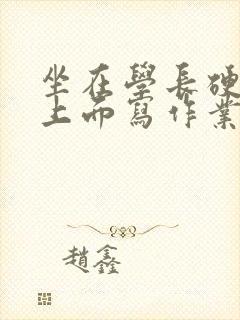 坐在學長硬
上而寫作業
趙鑫